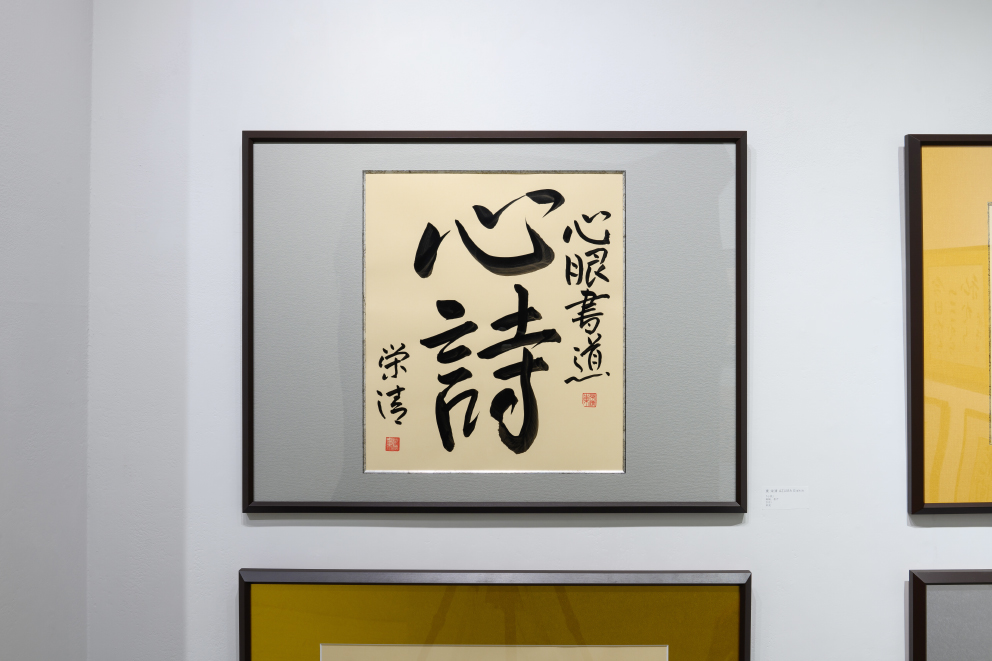 心眼書道
心詩
栄清